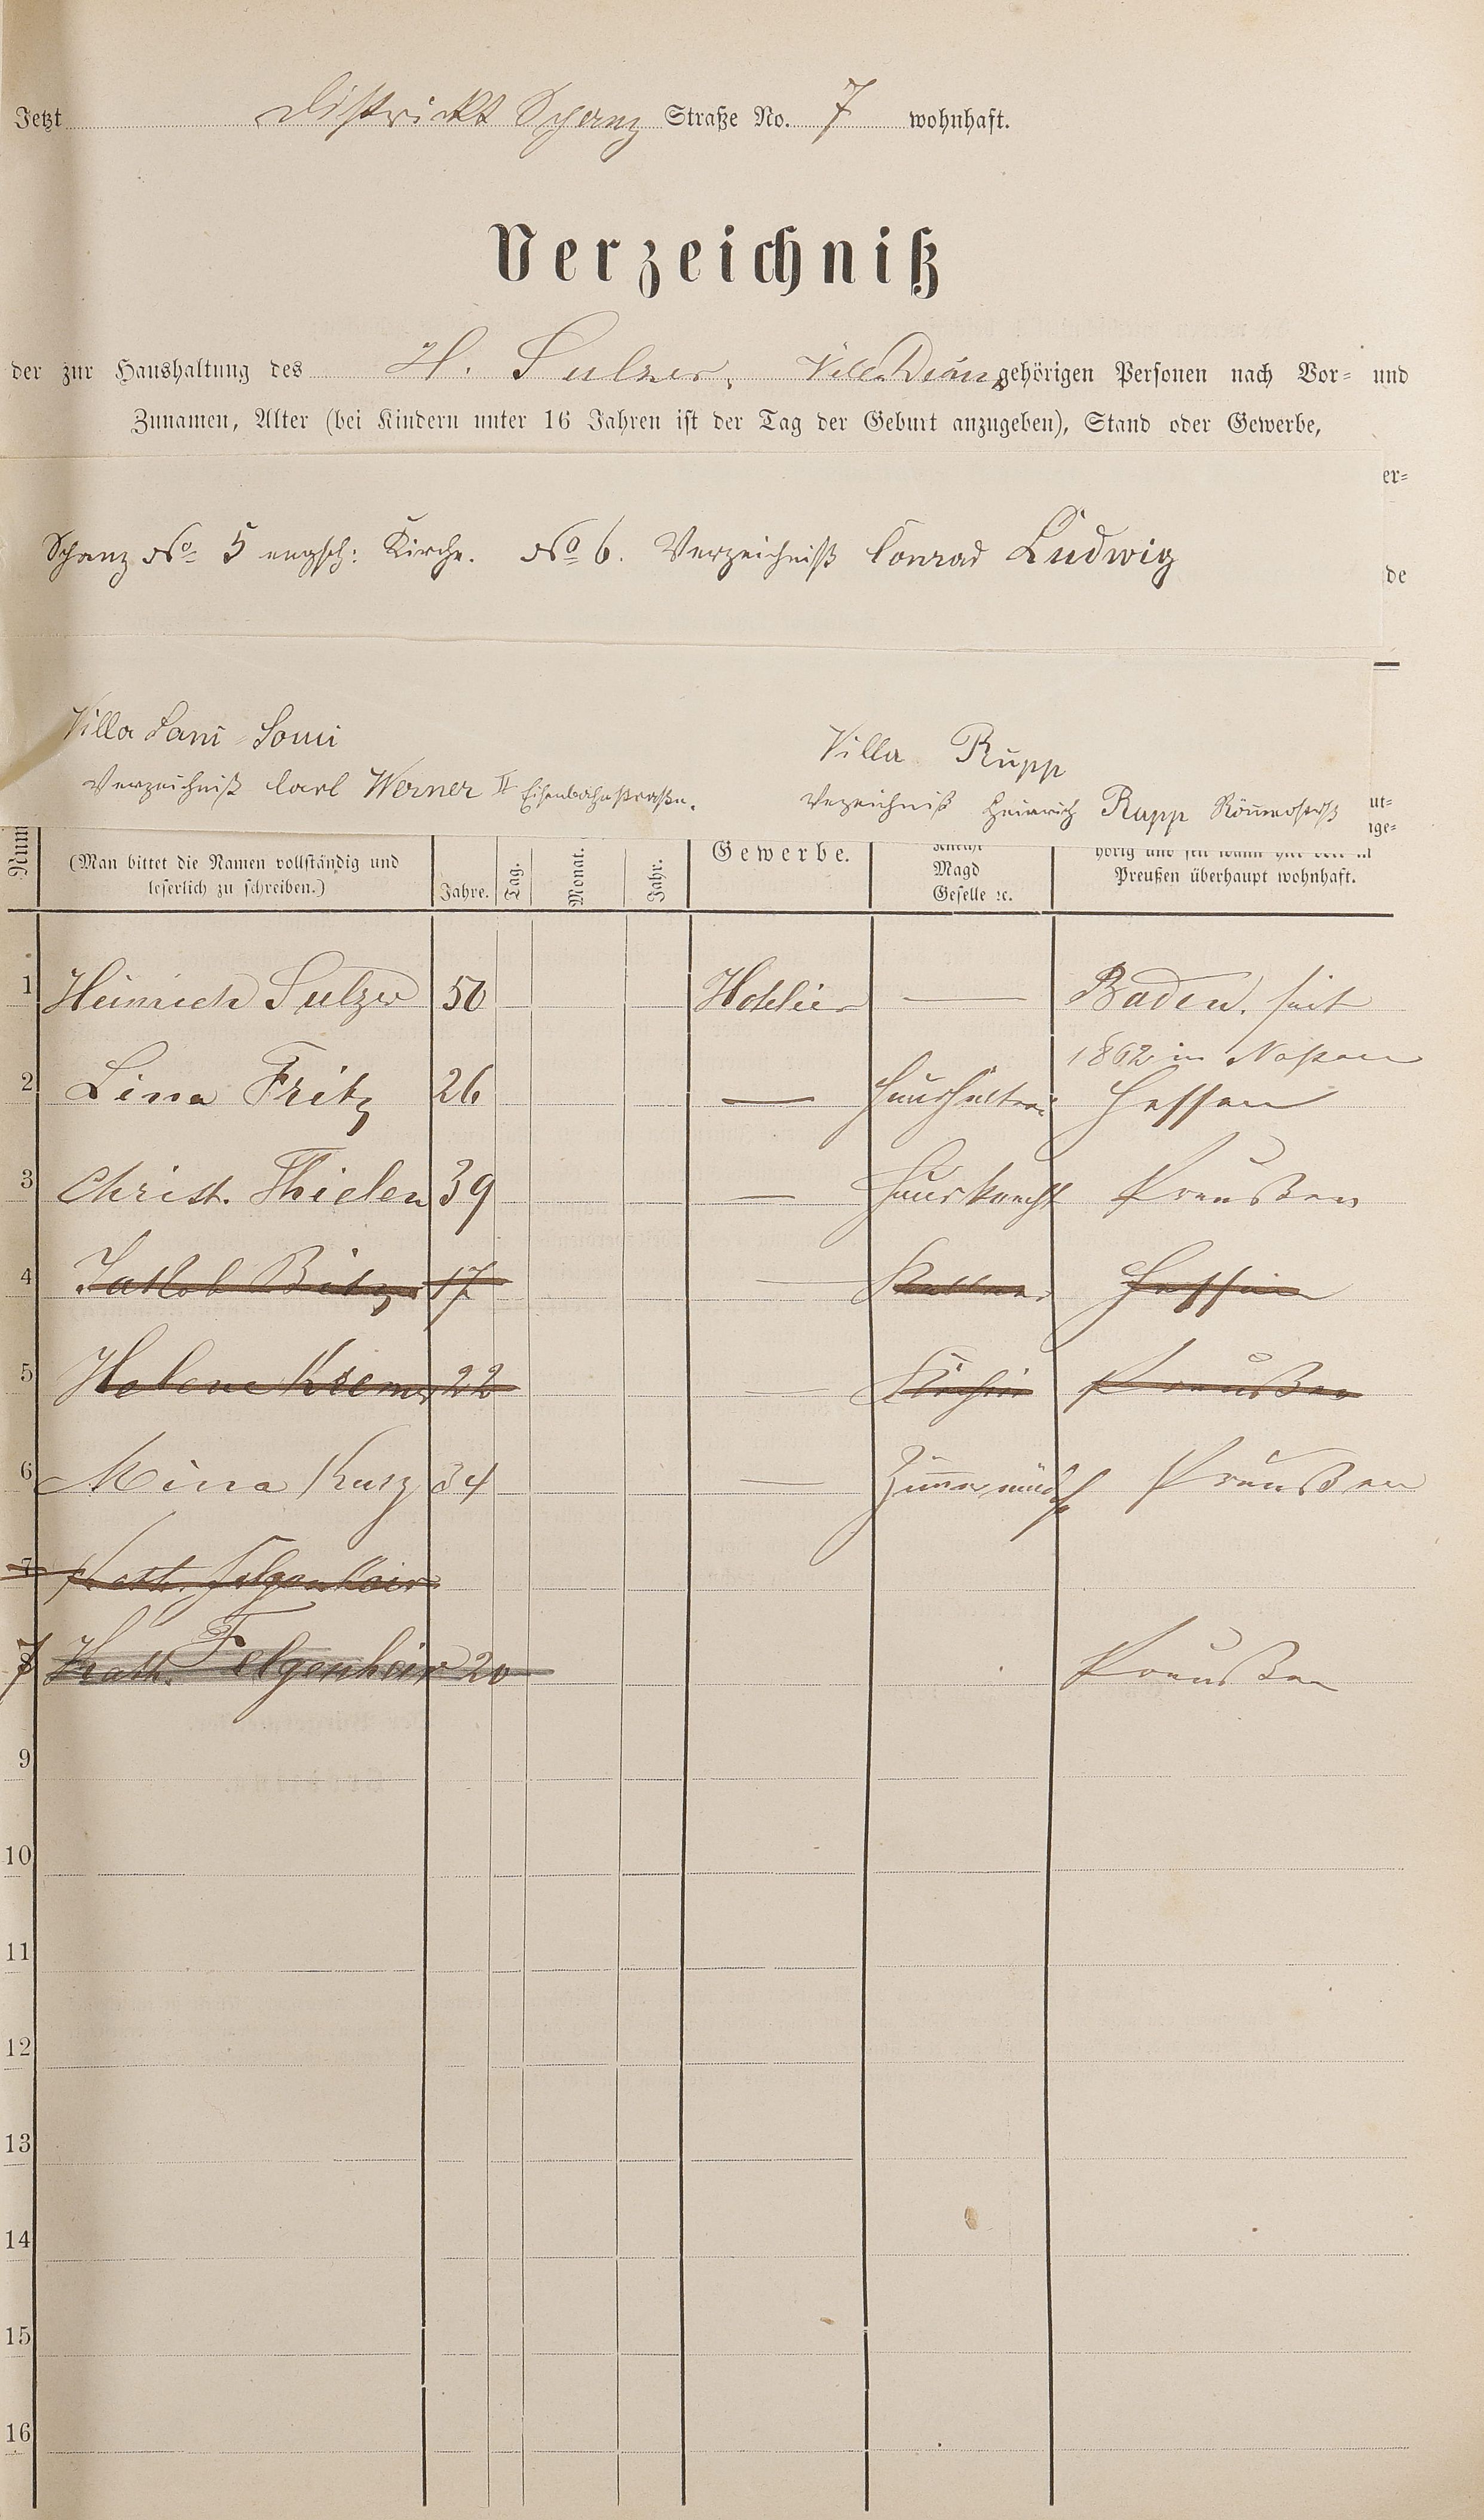 Jetzt Districkt Schanz Straße No. 7 wohnhaft.
Verzeichniß
der zur Haushaltung des H. Sulzer, gehörigen Personen nach Vor- und
Zunamen, Alter (bei Kindern unter 16 Jahren ist der Tag der Geburt anzugeben), Stand oder Gewerbe,
er-
Schanz No 5 englsch: Kirche. No 6. Verzeichniß Conrad Ludwig
de
Villa Sans-Souci
Villa Rupp
Verzeichniß Carl Werner II Eisenbahnstraße.
Verzeichniß Heinrich Rupp Römerstrß
ut-
ige-
Num
(Man bittet die Namen vollständig und
leserlich zu schreiben.)
Jahre. Tag. Monat. Jahr.
Gewerbe.
Knecht
Magd
Geselle ꝛc.
hörig und seit wann
Preußen überhaupt wohnhaft.
1 Heinrich Sulzer 50 Hotelier — Baden. seit
1862 in Nassau
2 Lina Fritz 26 — Haushälterin Hessen
3 Christ. Thielen 39 — Hausknecht Preußen
4 Jakob Bitz 17 — Kellner Hessen
5 Helene Kremer 22 — Köchin Preußen
6 Mina Kurz 34 — Zimmermädch Preußen
7 Kath. Felgenheir
7 Kath. Felgenheir 20 Preußen
9
10
11
12
13
14
15
16